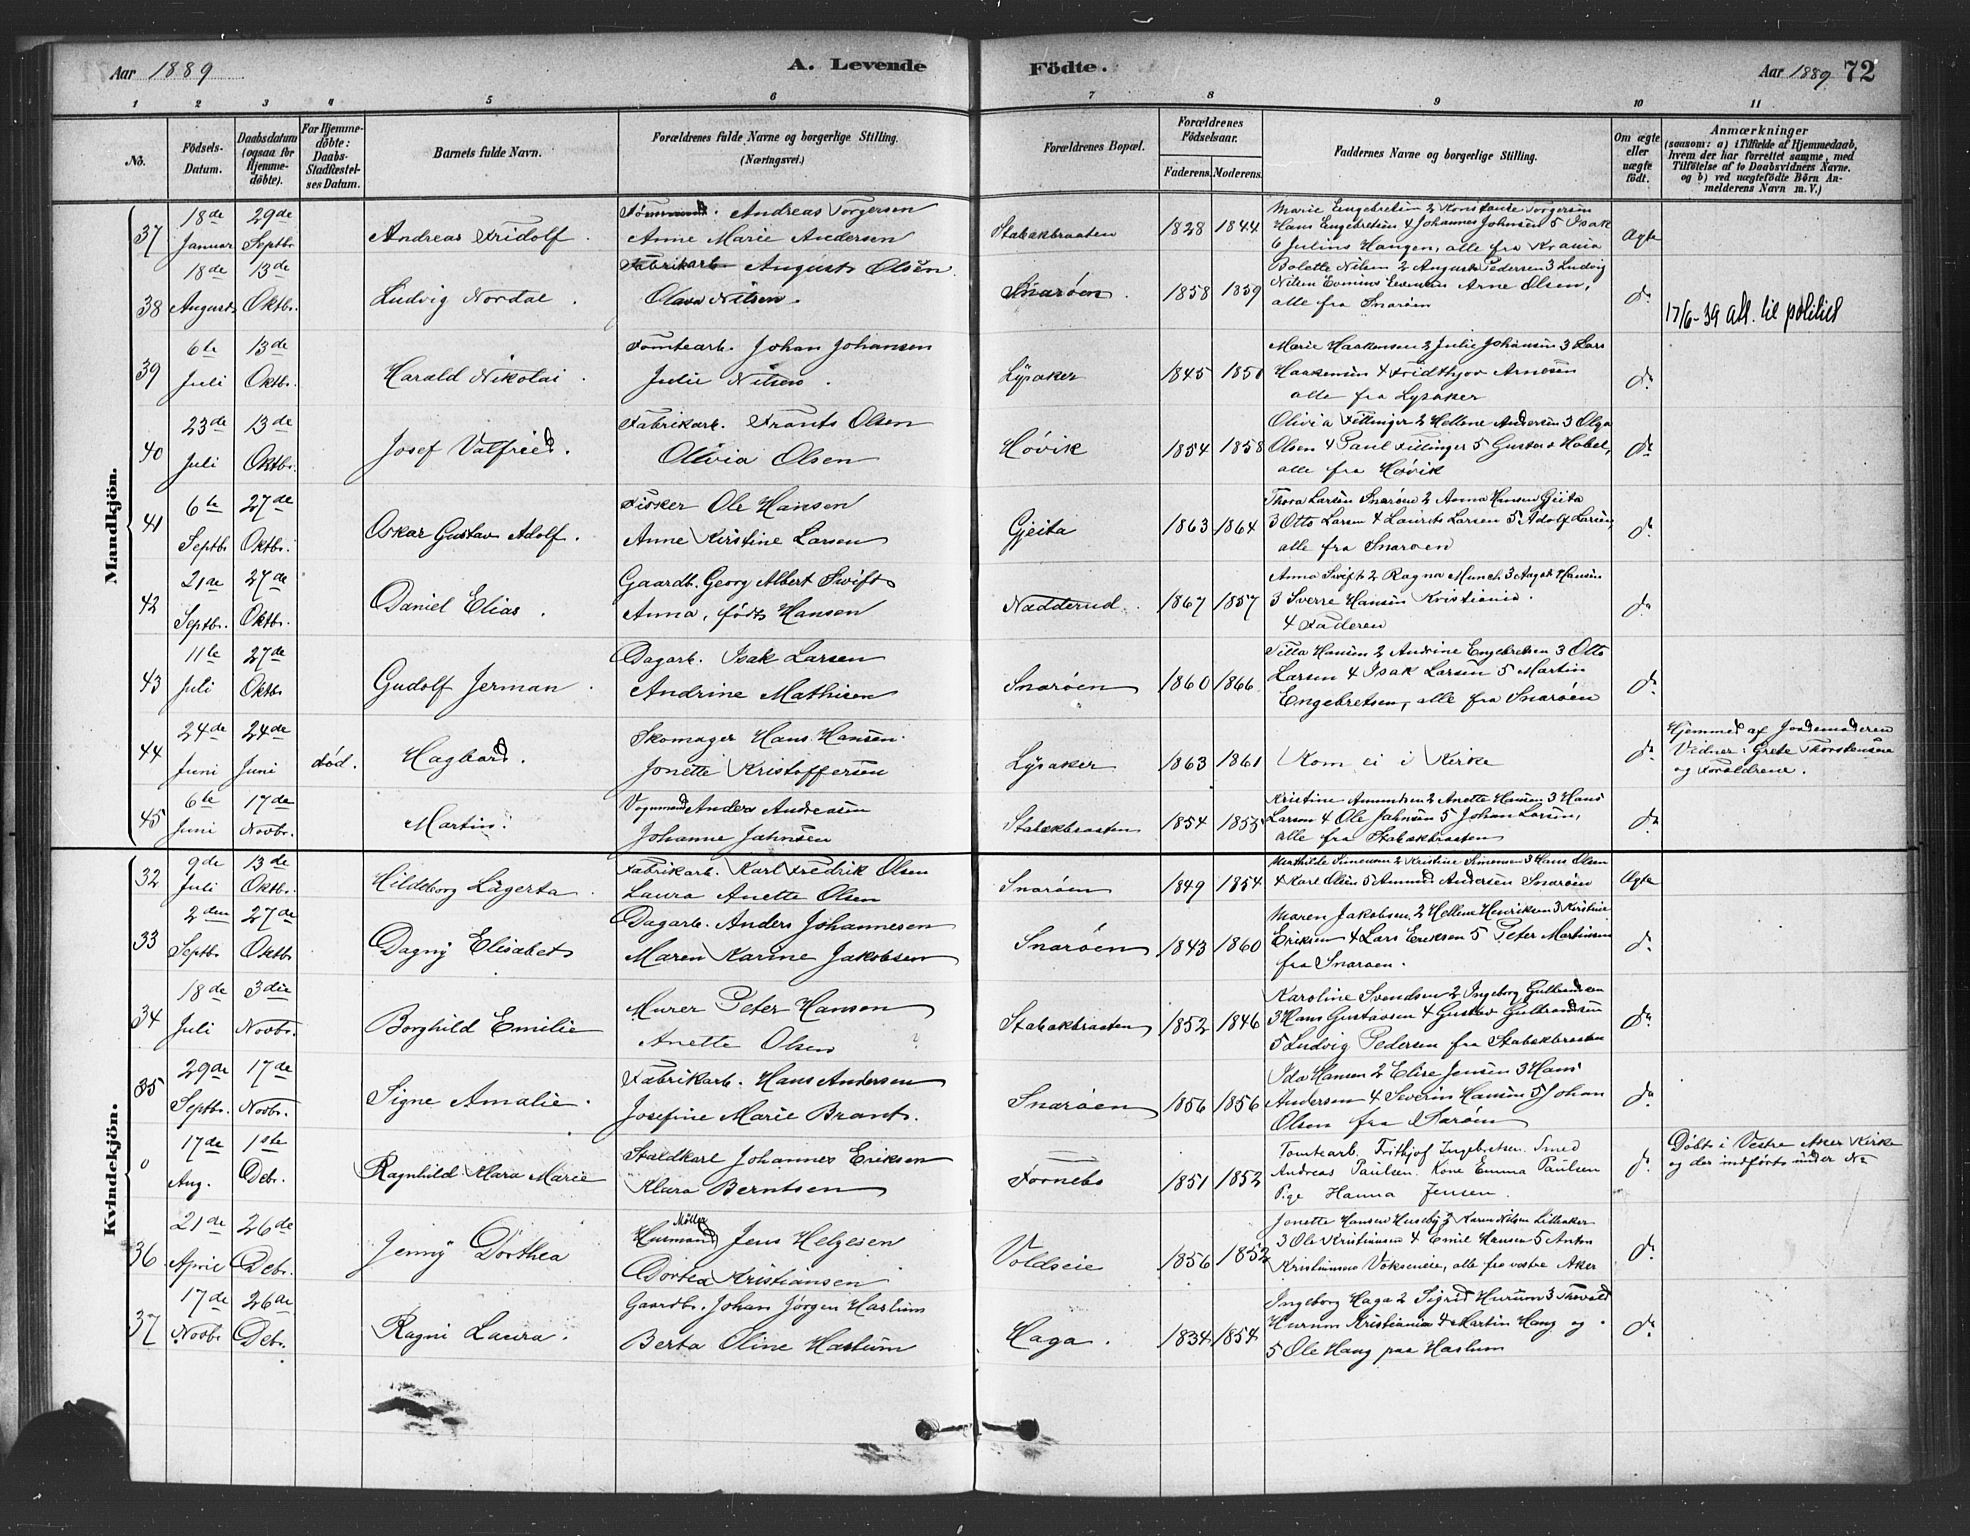 Aar 1889
A. Levende
Födte.
Aar 1889 72
1 2 3 4 5 6 7 8 9 10 11
No.
Födsels-Datum.
Daabsdatum (ogsaa for Hjemme-döbte).
For Hjemme-döbte: Daabs-Stadfæstel-ses Datum.
Barnets fulde Navn.
Forældrenes fulde Navne og borgerlige Stilling. (Næringsvei.)
Forældrenes Bopæl.
Forældrenes Födselsaar.
Faderens. Moderens.
Faddernes Navne og borgerlige Stilling.
Om ægte eller uægte födt.
Anmærkninger
(saasom: a) i Tilfælde af Hjemmedaab, hvem der har forrettet samme, med Tilföielse af to Daabsvidners Navne. og b) ved uægtefödte Börn An-melderens Navn m. V.)
Mandkjön.
37 18de Januar 29de Septbr. Andreas Fridolf. Andreas Torgersen
Anne Marie Andersen Stabækbraaten 1828 1844 Marie Engebretsen 2 Konstanse Torgersen
Hans Engebretsen 4 Johannes Johnsen 5 Isak
6 Julius Haugen, alle fra Krania Ægte
38 18de August 13de Oktbr. Ludvig Nordal. Fabrikarb. August Olsen.
Olava Nilsen. Snarøen. 1858 1859 Bolette Nilsen 2 August Pedersen 3 Ludvig
Nilsen Arne Olsen,
alle fra Snarøen do 17/6-39 att. til politiet
39 6te Juli 13de Oktbr. Harald Nikolai. Tomtearb. Johan Johansen
Julie Nilsen. Lysaker 1845 1850 Marie Haakensen 2 Julie Johansen 3 Lars
Haakensen 4 Fridthjov Arnesen
alle fra Lysaker do
40 23de Juli 13de Oktbr. Josef Valfried. Fabrikarb. Frants Olsen
Olivia Olsen Høvik 1854 1858 Olivia Fittinger 2 Hellene Andersen 3 Olga
Olsen 4 Paul Fittinger 5 Gustav Habel,
alle fra Høvik do
41 6te Septbr. 27de Oktbr. Oskar Gustav Adolf. Fisker Ole Hansen
Anne Kirstine Larsen Gjeita 1863 1864 Thora Larsen Snarøen 2 Anna Hansen Gjeita
3 Otto Larsen 4 Laurits Larsen 5 Adolf Larsen
alle fra Snarøen do
42 21de Septbr. 27de Oktbr. Daniel Elias. Gaardb. Georg Albert Swift
Anna, født Hansen Nadderud. 1867 1857 Anna Swift 2 Ragna Munch 3 Aagot Hansen
3 Sverre Hansen Kristiania.
4 Faderen do
43 11te Juli 27de Oktbr Gudolf Jerman. Dagarb. Isak Larsen
Andrine Mathisen Snarøen 1860 1866 Titta Hansen 2 Andrine Engebretsen 3 Otto
Larsen 4 Isak Larsen 5 Martin
Engebretsen, alle fra Snarøen do
44 24de Juni 24de Juni død. Hagbard. Skomager Hans Hansen.
Jonette Kristoffersen Lysaker 1863 1861 Kom ei i Kirke do Hjemmed af Jordemoderen
Vidner: Grete Thorstensen
og Forældrene.
45 6te Juni 17de Novbr. Martin. Vognmand Anders Andreasen
Johanne Jahnsen Stabækbraaten 1854 1855 Kristine Amundsen 2 Anette Hansen 3 Hans
Larsen 4 Ole Jahnsen 5 Johan Larsen,
alle fra Stabækbraaten do
Kvindekjön.
32 9de Juli 13de Oktbr. Hildeborg Lagerta. Fabrikarb. Karl Fredrik Olsen
Laura Anette Olsen Snarøen 1849 1854 Mathilde Simensen 2 Kristine Simensen 3 Hans Olsen
4 Karl Olsen 5 Amund Andersen Snarøen Ægte
33 2den Septbr. 27de Oktbr. Dagny Elisabet Dagarb. Anders Johannesen
Maren Karine Jakobsen Snarøen 1843 1860 Maren Jakobsen 2 Hellene Henriksen 3 Kristine
Eriksen 4 Lars Eriksen 5 Peter Martinsen
fra Snarøen. do
34 18de Juli 3die Novbr. Borghild Emilie Murer Peter Hansen
Anette Olsen Stabækbraaten 1852 1846 Karoline Svendsen 2 Ingeborg Gulbrandsen
3 Hans Gustavsen 4 Gustav Gulbrandsen
5 Ludvig Pedersen fra Stabækbraaten do
35 29de Septbr. 17de Novbr. Signe Amalie. Fabrikarb. Hans Andersen
Josefine Marie Brant. Snarøen 1856 1856 Ida Hansen 2 Elise Jensen 3 Hans
Andersen 4 Severin Hansen 5 Johan
Olsen fra Snarøen do
0 17de Aug. 1ste Debr. Ragnhild Klara Marie Staldkarl Johannes Eriksen
Klara Berntsen Fornebo 1851 1852 Tomtearb. Frithjof Ingebretsen. Smed
Andreas Paulsen. Kone Emma Paulsen
Pige Hanna Jensen. do Døbt i Vestre Aker Kirke
og der indført under No
36 21de April 26de Debr. Jenny Dorthea Møller
Husmand Jens Helgesen
Dortea Kristiansen Voldseie 1856 1852 Jonette Hansen Huseby 2 Karen Nilsen Lilleaker
3 Ole Kristiansen 4 Emil Hansen 5 Anton
Kristiansen Voksenseie, alle fra vestre Aker do
37 17de Novbr. 26de Debr. Ragni Laura. Gaardbr. Johan Jørgen Haslum
Berta Oline Haslum Haga. 1834 1854 Ingeborg Haga 2 Sigrid Hurum 3 Torvald
Hurum Kristiania 4 Martin Haug og
5 Ole Haug paa Haslum do